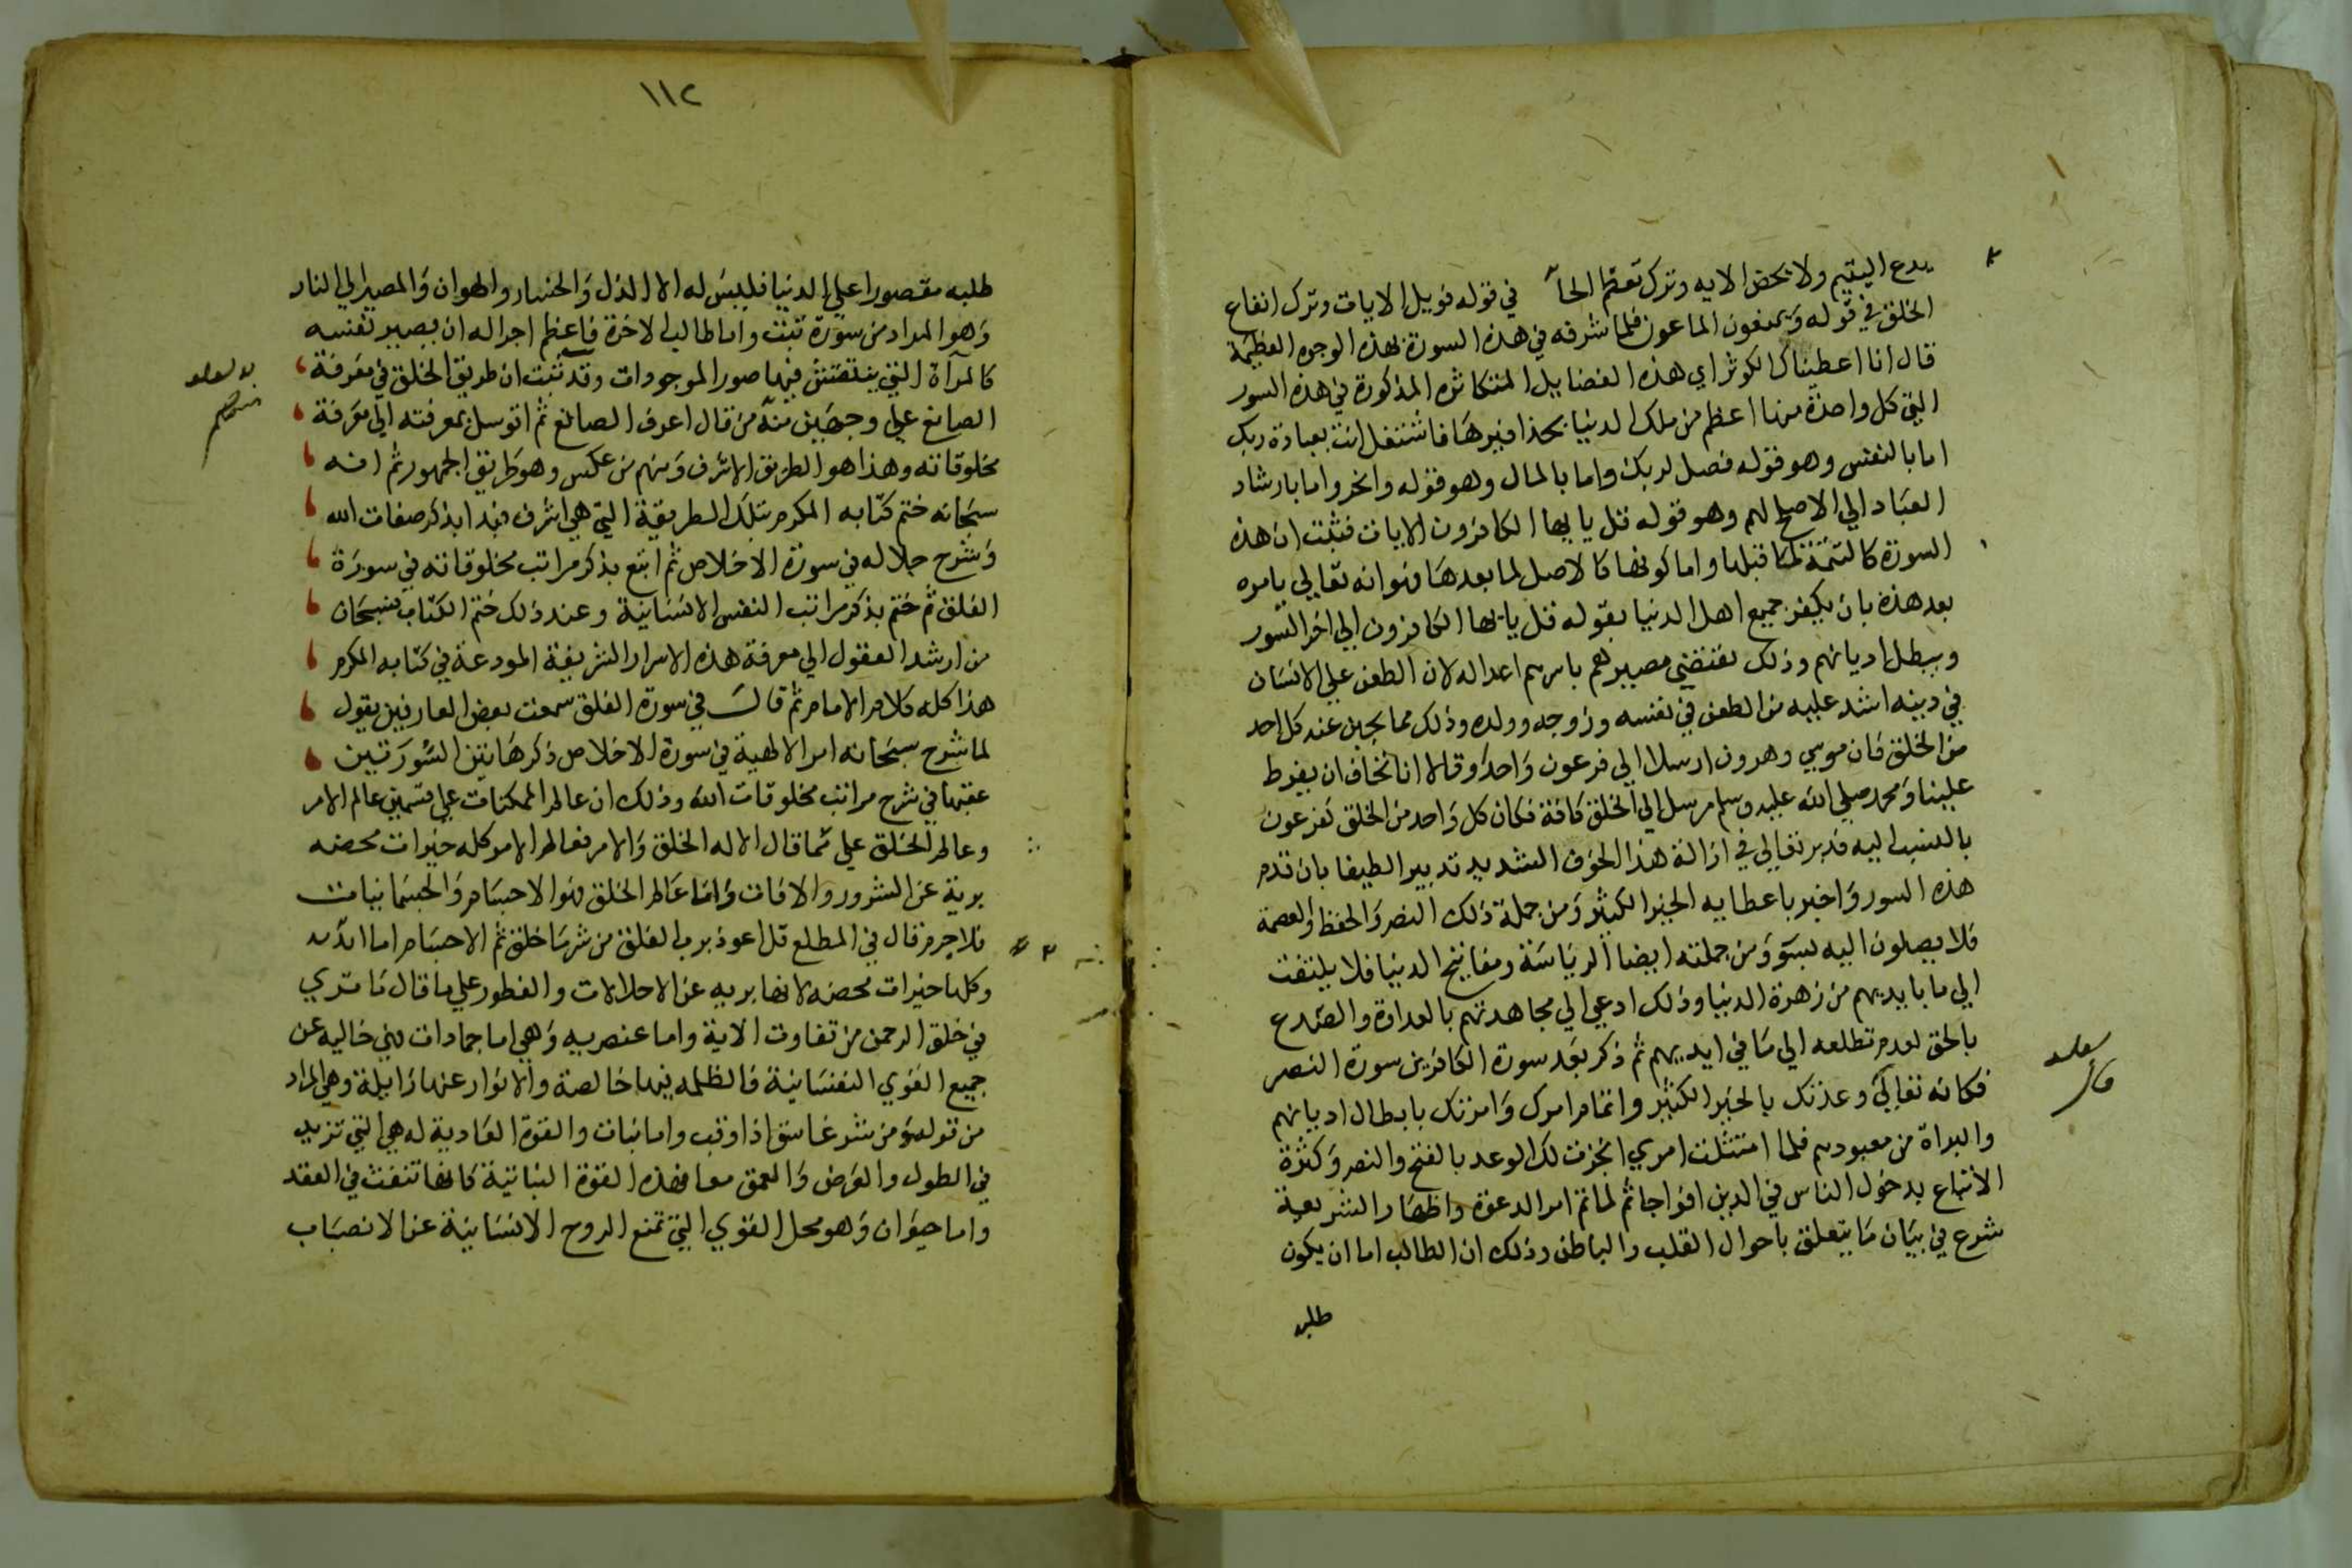 يدع اليتيم ولا يحض الايه وترك تعظم الخا في قوله فويل الايات وترك انفاع
الخلق في قوله ويمنعون الماعون فلما شرفه في هذه السورة بهذه الوجوه العظيمة
قال انا اعطيناك الكوثر اي هذه الفضايل المتكاثره المذكورة في هذه السور
التي كل واحدة منها اعظم من ملك الدنيا بحذافيرها فاشتغل انت بعبادة ربك
اما بالنفس وهو قوله فصل لربك واما بالمال وهو قوله وانحر واما بارشاد
العباد الي الاصلح لهم وهو قوله قل يايها الكافرون الايات فثبت ان هذه
السورة كالتتمة لما قبلها واما كونها كالاصل لما بعدها فهو انه تعالي يامره
بعد هذه بان يكفر جميع اهل الدنيا بقوله قل يايها الكافرون الي اخر السور
ويبطل اديانهم وذلك يقتضي مصيرهم باسرهم اعدا له لان الطعن علي الانسان
في دينه اشد عليه من الطعن في نفسه وزوجه وولده وذلك مما يجبن عنه كل احد
من الخلق فان موسي وهرون ارسلا الي فرعون واحد وقالا اننا نخاف ان يفرط
علينا ومحمد صلي الله عليه وسلم مرسل الي الخلق كافة فكان كل واحد من الخلق كفرعون
بالنسبه اليه فدبر تعالي في ازالة هذا الخوف الشديد تدبيرا لطيفا بان قدم
هذه السور واخبر باعطايه الخير الكثير ومن جملة ذلك النصر والحفظ والعصمة
فلا يصلون اليه بسوء ومن جملته ايضا الرياسة ومفاتيح الدنيا فلا يلتفت
الي ما بايديهم من زهرة الدنيا وذلك ادعي الي مجاهدتهم بالعداوة والصدع
بالحق لعدم تطلعه الي ما في ايديهم ثم ذكر بعد سورة الكافرين سورة النصر
فكانه تعالي وعدتك بالخير الكثير واتمام امرك وامرتك بابطال اديانهم
والبراة من معبودهم فلما امتثلت امري انجزت لك الوعد بالفتح والنصر وكثرة
الاتباع بدخول الناس في الدين افواجا ثم لما تم امر الدعوة واظهار الشريعة
شرع في بيان ما يتعلق باحوال القلب والباطن وذلك ان الطالب اما ان يكون
طلبه
١١٢
طلبه مقصورا علي الدنيا فليس له الا الذل والخسار والهوان والمصير الي النار
وهو المراد من سورة تبت واما طالب الاخرة فاعظم احواله ان يصير نفسه
كالمرآة التي ينتقش فيها صور الموجودات وقد ثبت ان طريق الخلق في معرفة
الصانع علي وجهين منه من قال اعرف الصانع ثم اتوسل بمعرفته الي معرفة
مخلوقاته وهذا هو الطريق الاشرف ومنهم من عكس وهو طريق الجمهور ثم انه
سبحانه ختم كتابه المكرم بتلك الطريقة التي هي اشرف فبدا بذكر صفات الله
وشرح جلاله في سورة الاخلاص ثم اتبع بذكر مراتب مخلوقاته في سورة
الفلق ثم ختم بذكر مراتب النفس الانسانية وعند ذلك ختم الكتاب فسبحان
من ارشد العقول الي معرفة هذه الاسرار الشريفة المودعة في كتابه المكرم
هذا كله كلام الامام ثم قال في سورة الفلق سمعت بعض العارفين يقول
لما شرح سبحانه امر الالهية في سورة الاخلاص ذكر هاتين السورتين
عقبها في شرح مراتب مخلوقات الله وذلك ان عالم الممكنات علي قسمين عالم الامر
وعالم الخلق علي ما قال الا له الخلق والامر فعالم الامر كله خيرات محضه
برية عن الشرور والافات واما عالم الخلق فهو الاجسام والجسمانيات
فلا جرم قال في المطلع قل اعوذ برب الفلق من شر ما خلق ثم الاجسام اما
وكلها خيرات محضه لانها بريه عن الاحلالات والفطور علي ما قال ما تري
في خلق الرحمن من تفاوت الاية واما عنصريه وهي اما جمادات فهي خاليه عن
جميع القوي النفسانية فالظلمه فيها خالصة والانوار عنها زايلة وهي المراد
من قوله ومن شر غاسق اذا وقب واما نبات والقوة العادية له هي التي تزيد
في الطول والعرض والعمق معا فهذه القوة النباتية كانها تنفث في العقد
واما حيوان وهو محل القوي التي تمنع الروح الانسانية عن الانصباب